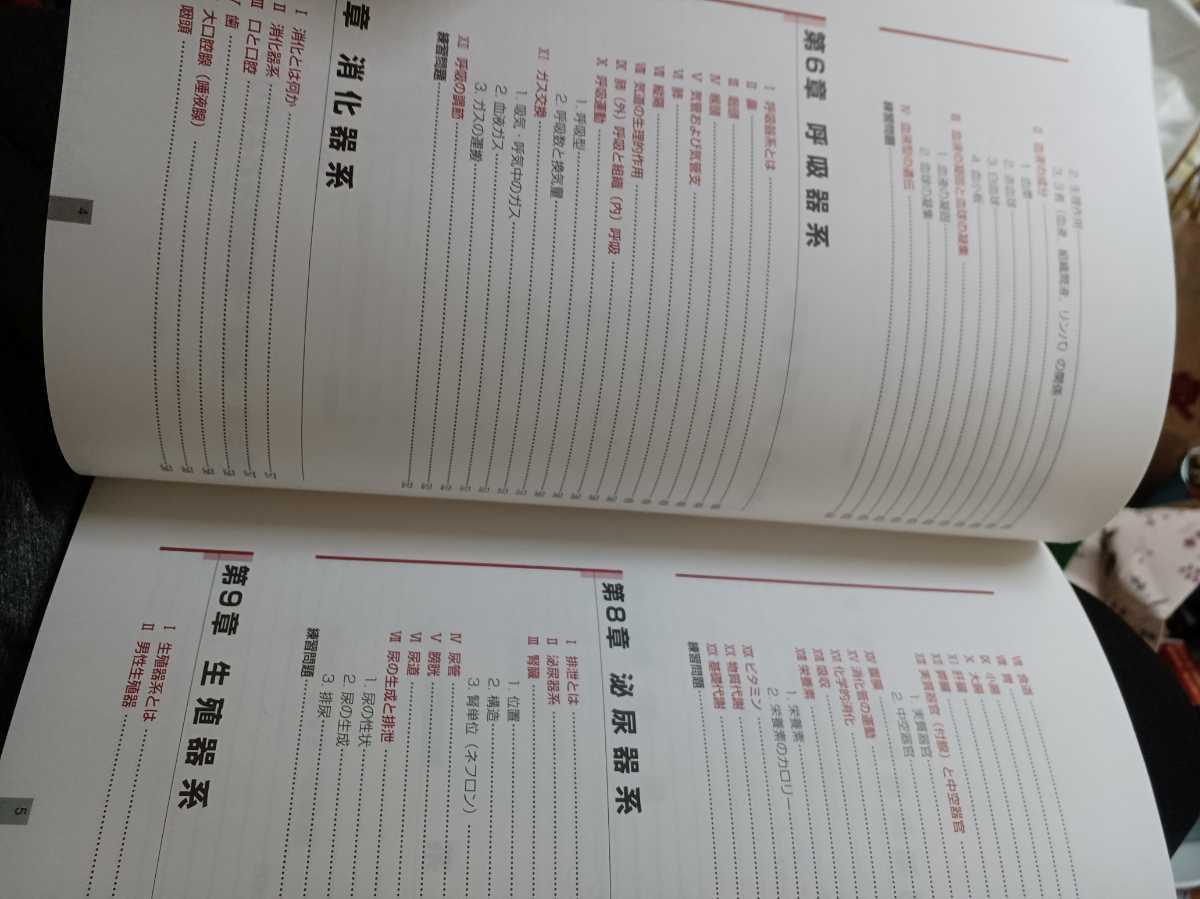 2. 生理作用
3. 3者(血液、組織間液、リンパ)の関係
Ⅱ 血液の成分
1. 血漿
2. 赤血球
3. 白血球
4. 血小板
Ⅲ 血液の凝固と血球の凝集
1. 血液の凝固
2. 血液の凝集
Ⅳ 血液型の遺伝
練習問題
第6章 呼吸器系
Ⅰ 呼吸器系とは
Ⅱ 鼻
Ⅲ 咽頭
Ⅳ 喉頭
Ⅴ 気管および気管支
Ⅵ 肺
Ⅶ 縦隔
Ⅷ 気道の生理的作用
Ⅸ 肺(外)呼吸と組織(内)呼吸
Ⅹ 呼吸運動
1. 呼吸型
2. 呼吸数と換気量
Ⅺ ガス交換
1. 吸気・呼気中のガス
2. 血液ガス
3. ガスの運搬
Ⅻ 呼吸の調節
練習問題
章 消化器系
Ⅰ 消化とは何か
Ⅱ 消化器系
Ⅲ 口と口腔
歯
大口腔腺(唾液腺)
咽頭
4
Ⅶ 食道
Ⅷ 胃
Ⅸ 小腸
Ⅹ 大腸
Ⅺ 肝臓
Ⅻ 膵臓
XIII 実質器官(付腺)と中空器官
1. 実質器官
2. 中空器官
XIV 腹膜
XV 消化管の運動
XVI 化学的消化
XVII 吸収
XVIII 栄養素
1. 栄養素
2. 栄養素のカロリー
XIX ビタミン
XX 物質代謝
XXI 基礎代謝
練習問題
第8章 泌尿器系
Ⅰ 排泄とは
Ⅱ 泌尿器系
Ⅲ 腎臓
1. 位置
2. 構造
3. 腎単位(ネフロン)
Ⅳ 尿管
Ⅴ 膀胱
Ⅵ 尿道
Ⅶ 尿の生成と排泄
1. 尿の性状
2. 尿の生成
3. 排尿
練習問題
第9章 生殖器系
Ⅰ 生殖器系とは
Ⅱ 男性生殖器
5